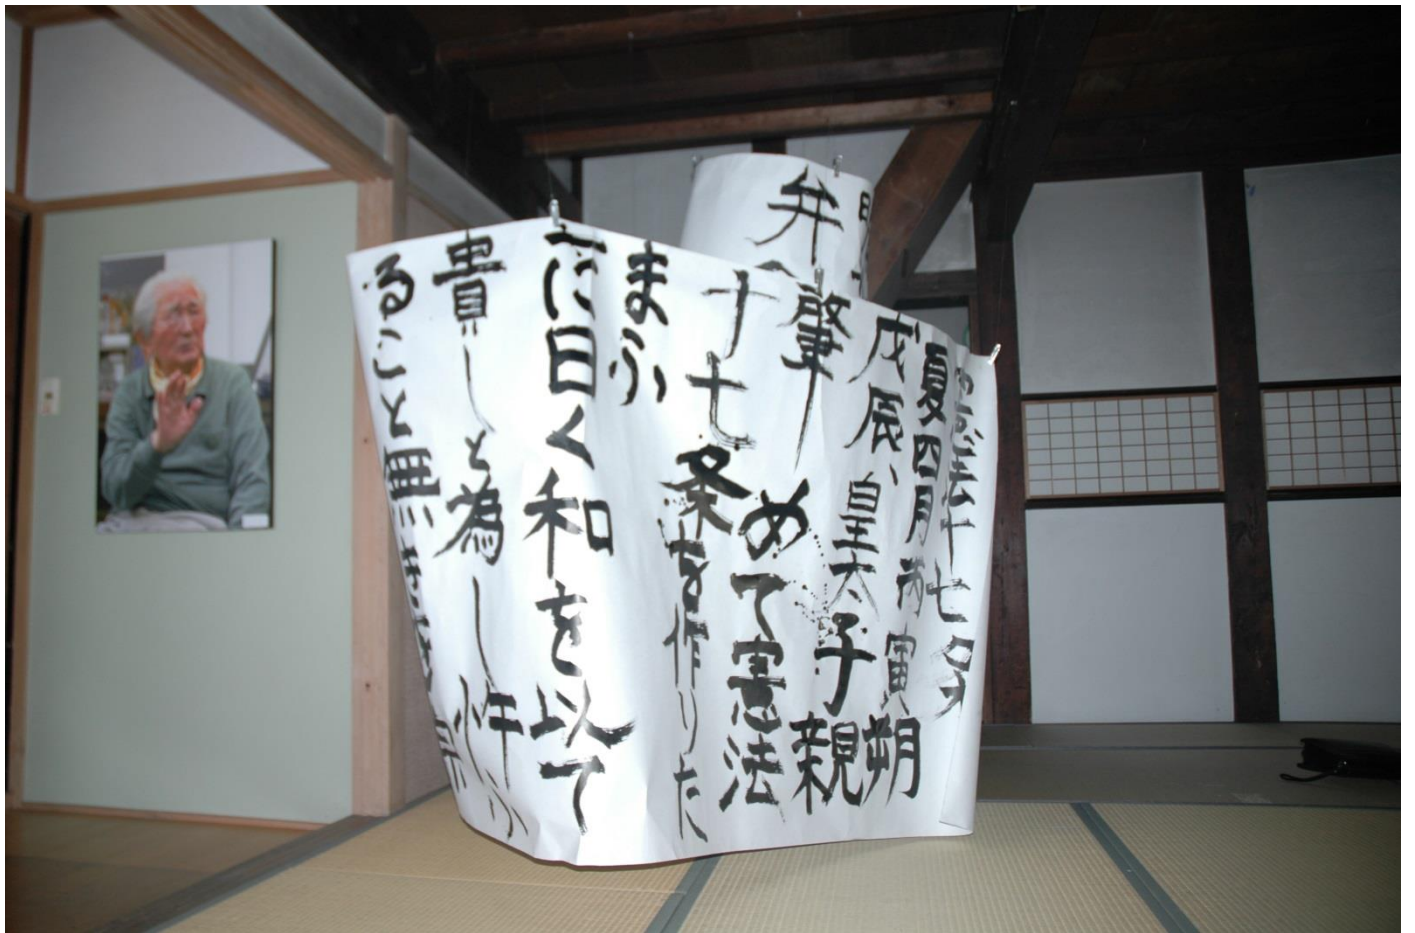 憲法十七条
夏四月丙寅朔
戊辰、皇太子親
肇めて憲法
十七条を作りた
まふ
一に曰く和を以て
貴しと為し忤ふ
ること無きを宗
弁